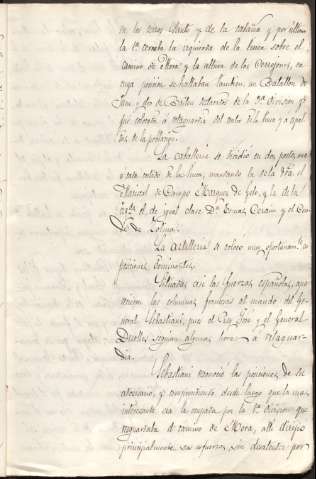 en los sitios Blanco y de la cabaña y por ultimo
la 1ª cerraba la izquierda de la linea sobre el
camino de Mora y la altura de los Consejeros, en
cuya posicion se hallaban tambien un Batallon de
y dos de destacados de la 2ª division y
fue colocada á retaguardia del centro de la linea y á espal
das de la poblacion.
La Caballeria se dividió en dos partes, una
á cada costado de la linea, mandando la sola dra. el
Mariscal de Campo Marques de Gelo, y la de la
izqda. el de igual clase Dn. Tomas Cerain y el Con
de de Zolina.
La Artilleria se colocó muy oportunamte. en
posiciones dominantes.
Situadas asi las fuerzas españolas, apa
recieron las columnas francesas al mando del Ge
neral Sebastiani, pues el Rey José y el General
Desolles seguian algunas horas á retaguar
dia.
Sebastiani reconoció las posiciones de su
adversario, y comprendiendo desde luego que la mas
interesante era la ocupada por la 1ª division que
resguardaba el camino de Mora, alli dirijió
principalmente sus esfuerzos, sin desatender por